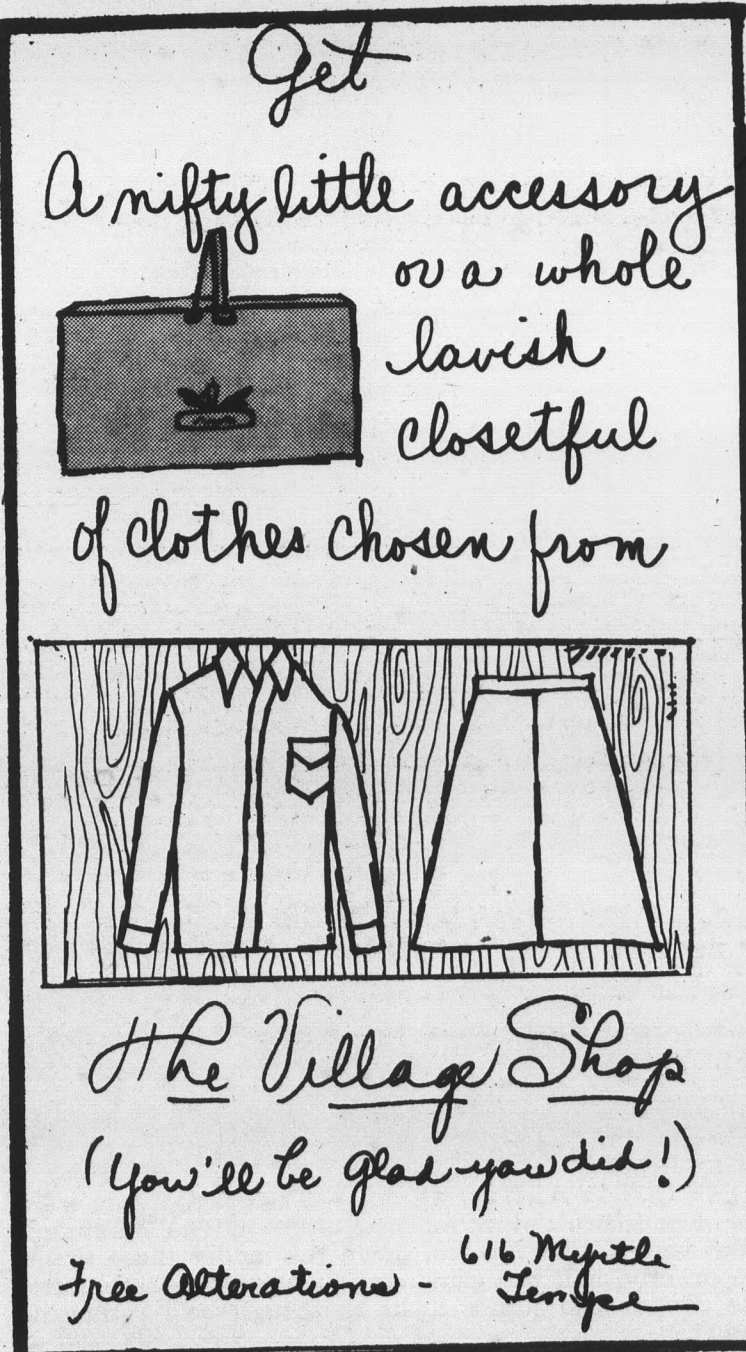 Get
A nifty little accessory
or a whole
lavish
closetful
of clothes chosen from
The Village Shop
(You'll be glad you did!)
Free Alterations -
616 Myrtle
Tempe